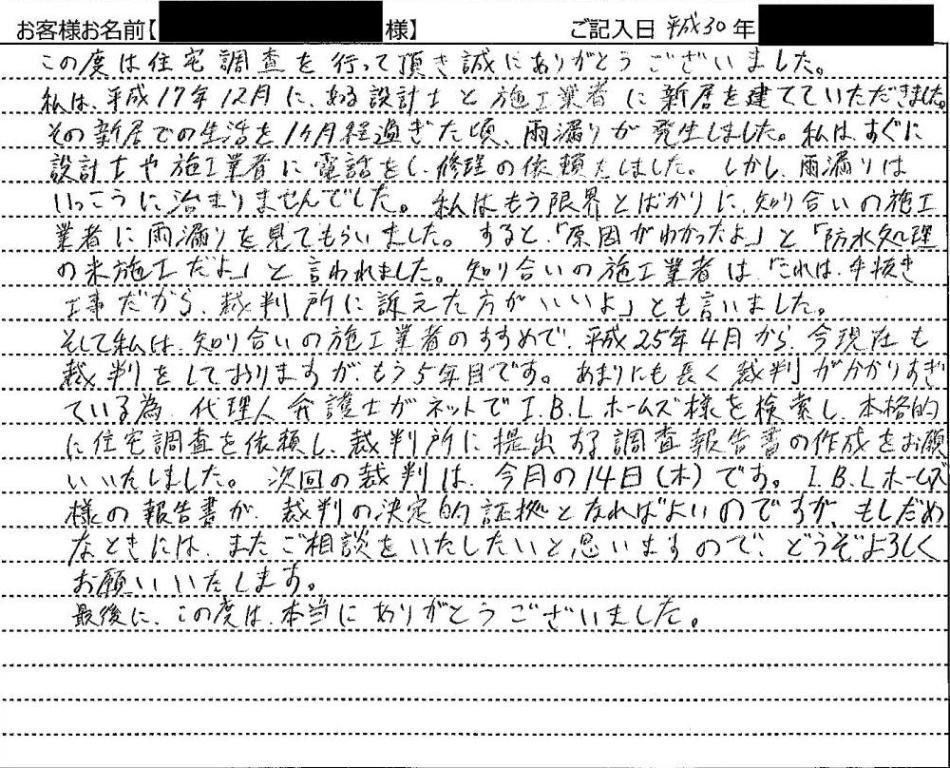 お客様お名前【 様】 ご記入日 平成30年
この度は住宅調査を行って頂き誠にありがとうございました。
私は、平成17年12月に、ある設計士と施工業者に新居を建てていただきました。
その新居での生活を1ヶ月経過ぎた頃、雨漏りが発生しました。私は、すぐに
設計士や施工業者に電話をし、修理の依頼をしました。しかし、雨漏りは
いっこうに治まりませんでした。私はもう限界とばかりに、知り合いの施工
業者に雨漏りを見てもらいました。すると、「原因がわかったよ」と「防水処理
の未施工だよ」と言われました。知り合いの施工業者は「これは、手抜き
工事だから、裁判所に訴えた方がいいよ」とも言いました。
そして私は、知り合いの施工業者のすすめで、平成25年4月から、今現在も
裁判をしておりますが、もう5年目です。あまりにも長く裁判がかかりすぎ
ている為、代理人弁護士がネットでI.B.Lホームズ様を検索し、本格的
に住宅調査を依頼し、裁判所に提出する調査報告書の作成をお願
いいたしました。次回の裁判は、今月の14日(木)です。I.B.Lホームズ
様の報告書が、裁判の決定的証拠となればよいのですが、もしだめ
なときには、またご相談をいたしたいと思いますので、どうぞよろしく
お願いいたします。
最後に、この度は、本当にありがとうございました。